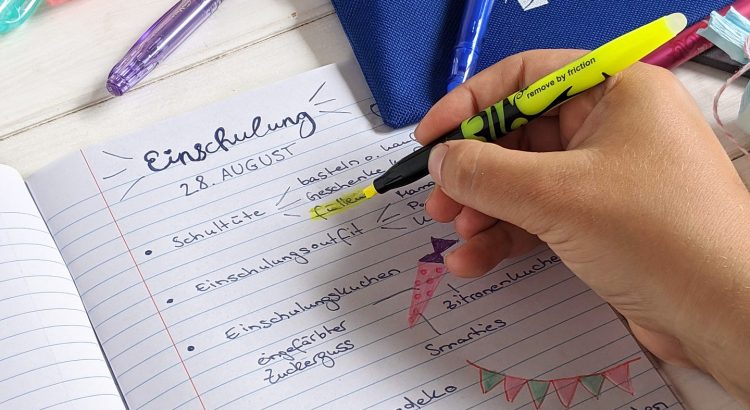 Einschulung
28. AUGUST
basteln o. kauf
Geschenke
Schultüte
füllen
Einschulungsoutfit
Einschulungskuchen
Zitronenkuchen
eingefärbter
Zuckerguss
Smarties
deko
remove by friction